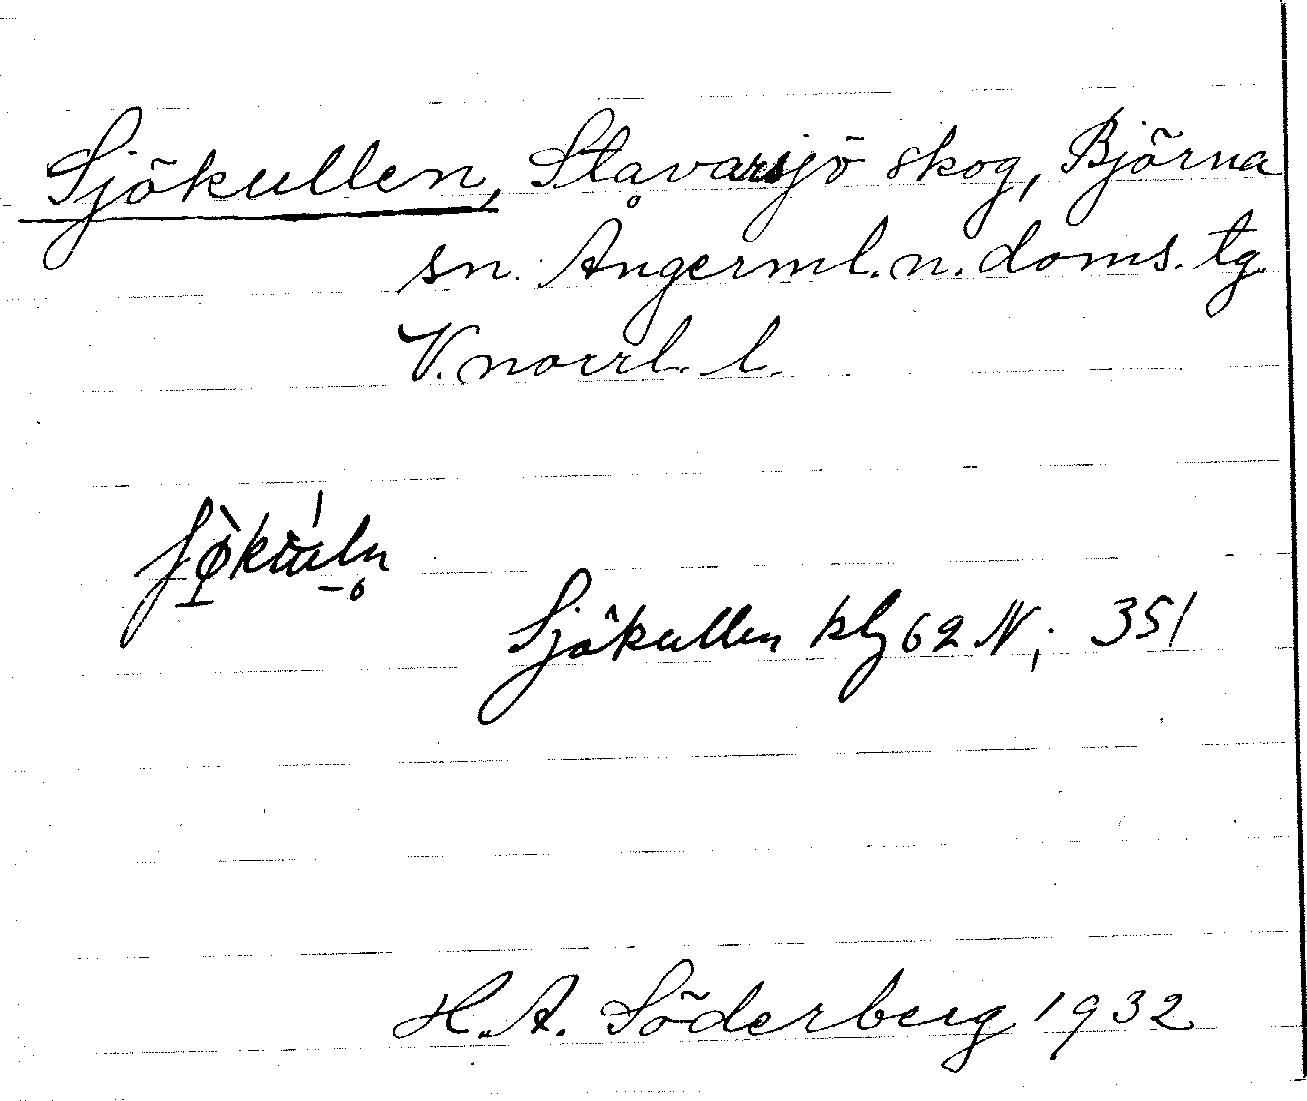 Sjökullen, Stavarsjö skog, Björna
sn. Ångerml. n. doms. tg
V. norrl. l.
Sjökullen klg 62 N; 351
H. A. Söderberg 1932